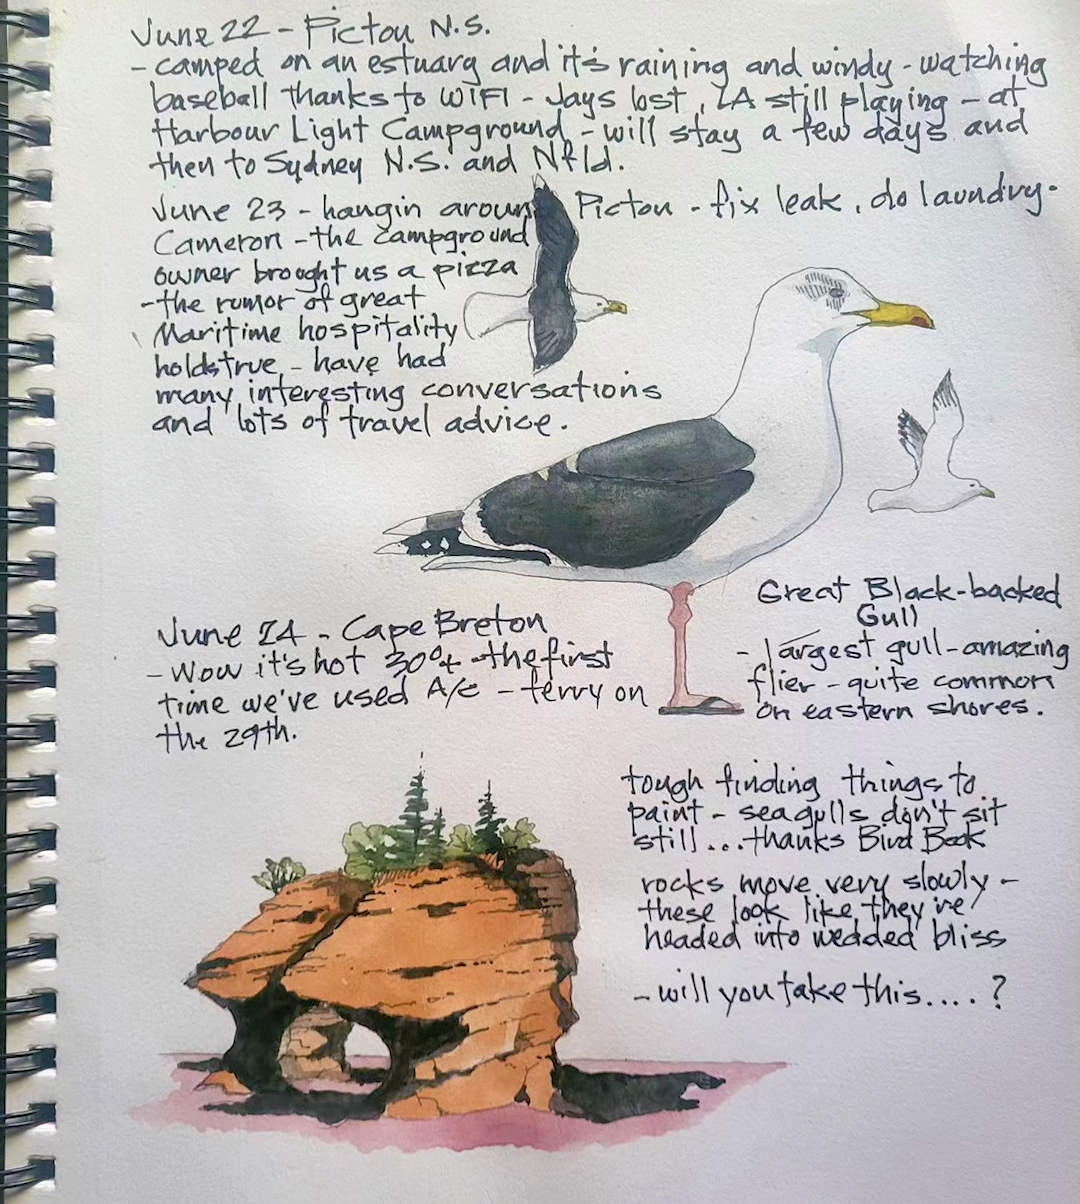 June 22 - Pictou N.S.
- camped on an estuary and it's raining and windy - watching
baseball thanks to WIFI - Jays lost, LA still playing - at
Harbour Light Campground - will stay a few days and
then to Sydney N.S. and Nfld.
June 23 - hangin around Pictou - fix leak, do laundry -
Cameron - the campground
owner brought us a pizza
- the rumor of great
Maritime hospitality
holds true - have had
many interesting conversations
and lots of travel advice.
Great Black-backed
Gull
- largest gull - amazing
flier - quite common
on eastern shores.
June 24 - Cape Breton
- Wow it's hot 30°+ - the first
time we've used A/C - ferry on
the 29th.
tough finding things to
paint - seagulls don't sit
still... thanks Bird Book
rocks move very slowly -
these look like they're
headed into wedded bliss
- will you take this.... ?